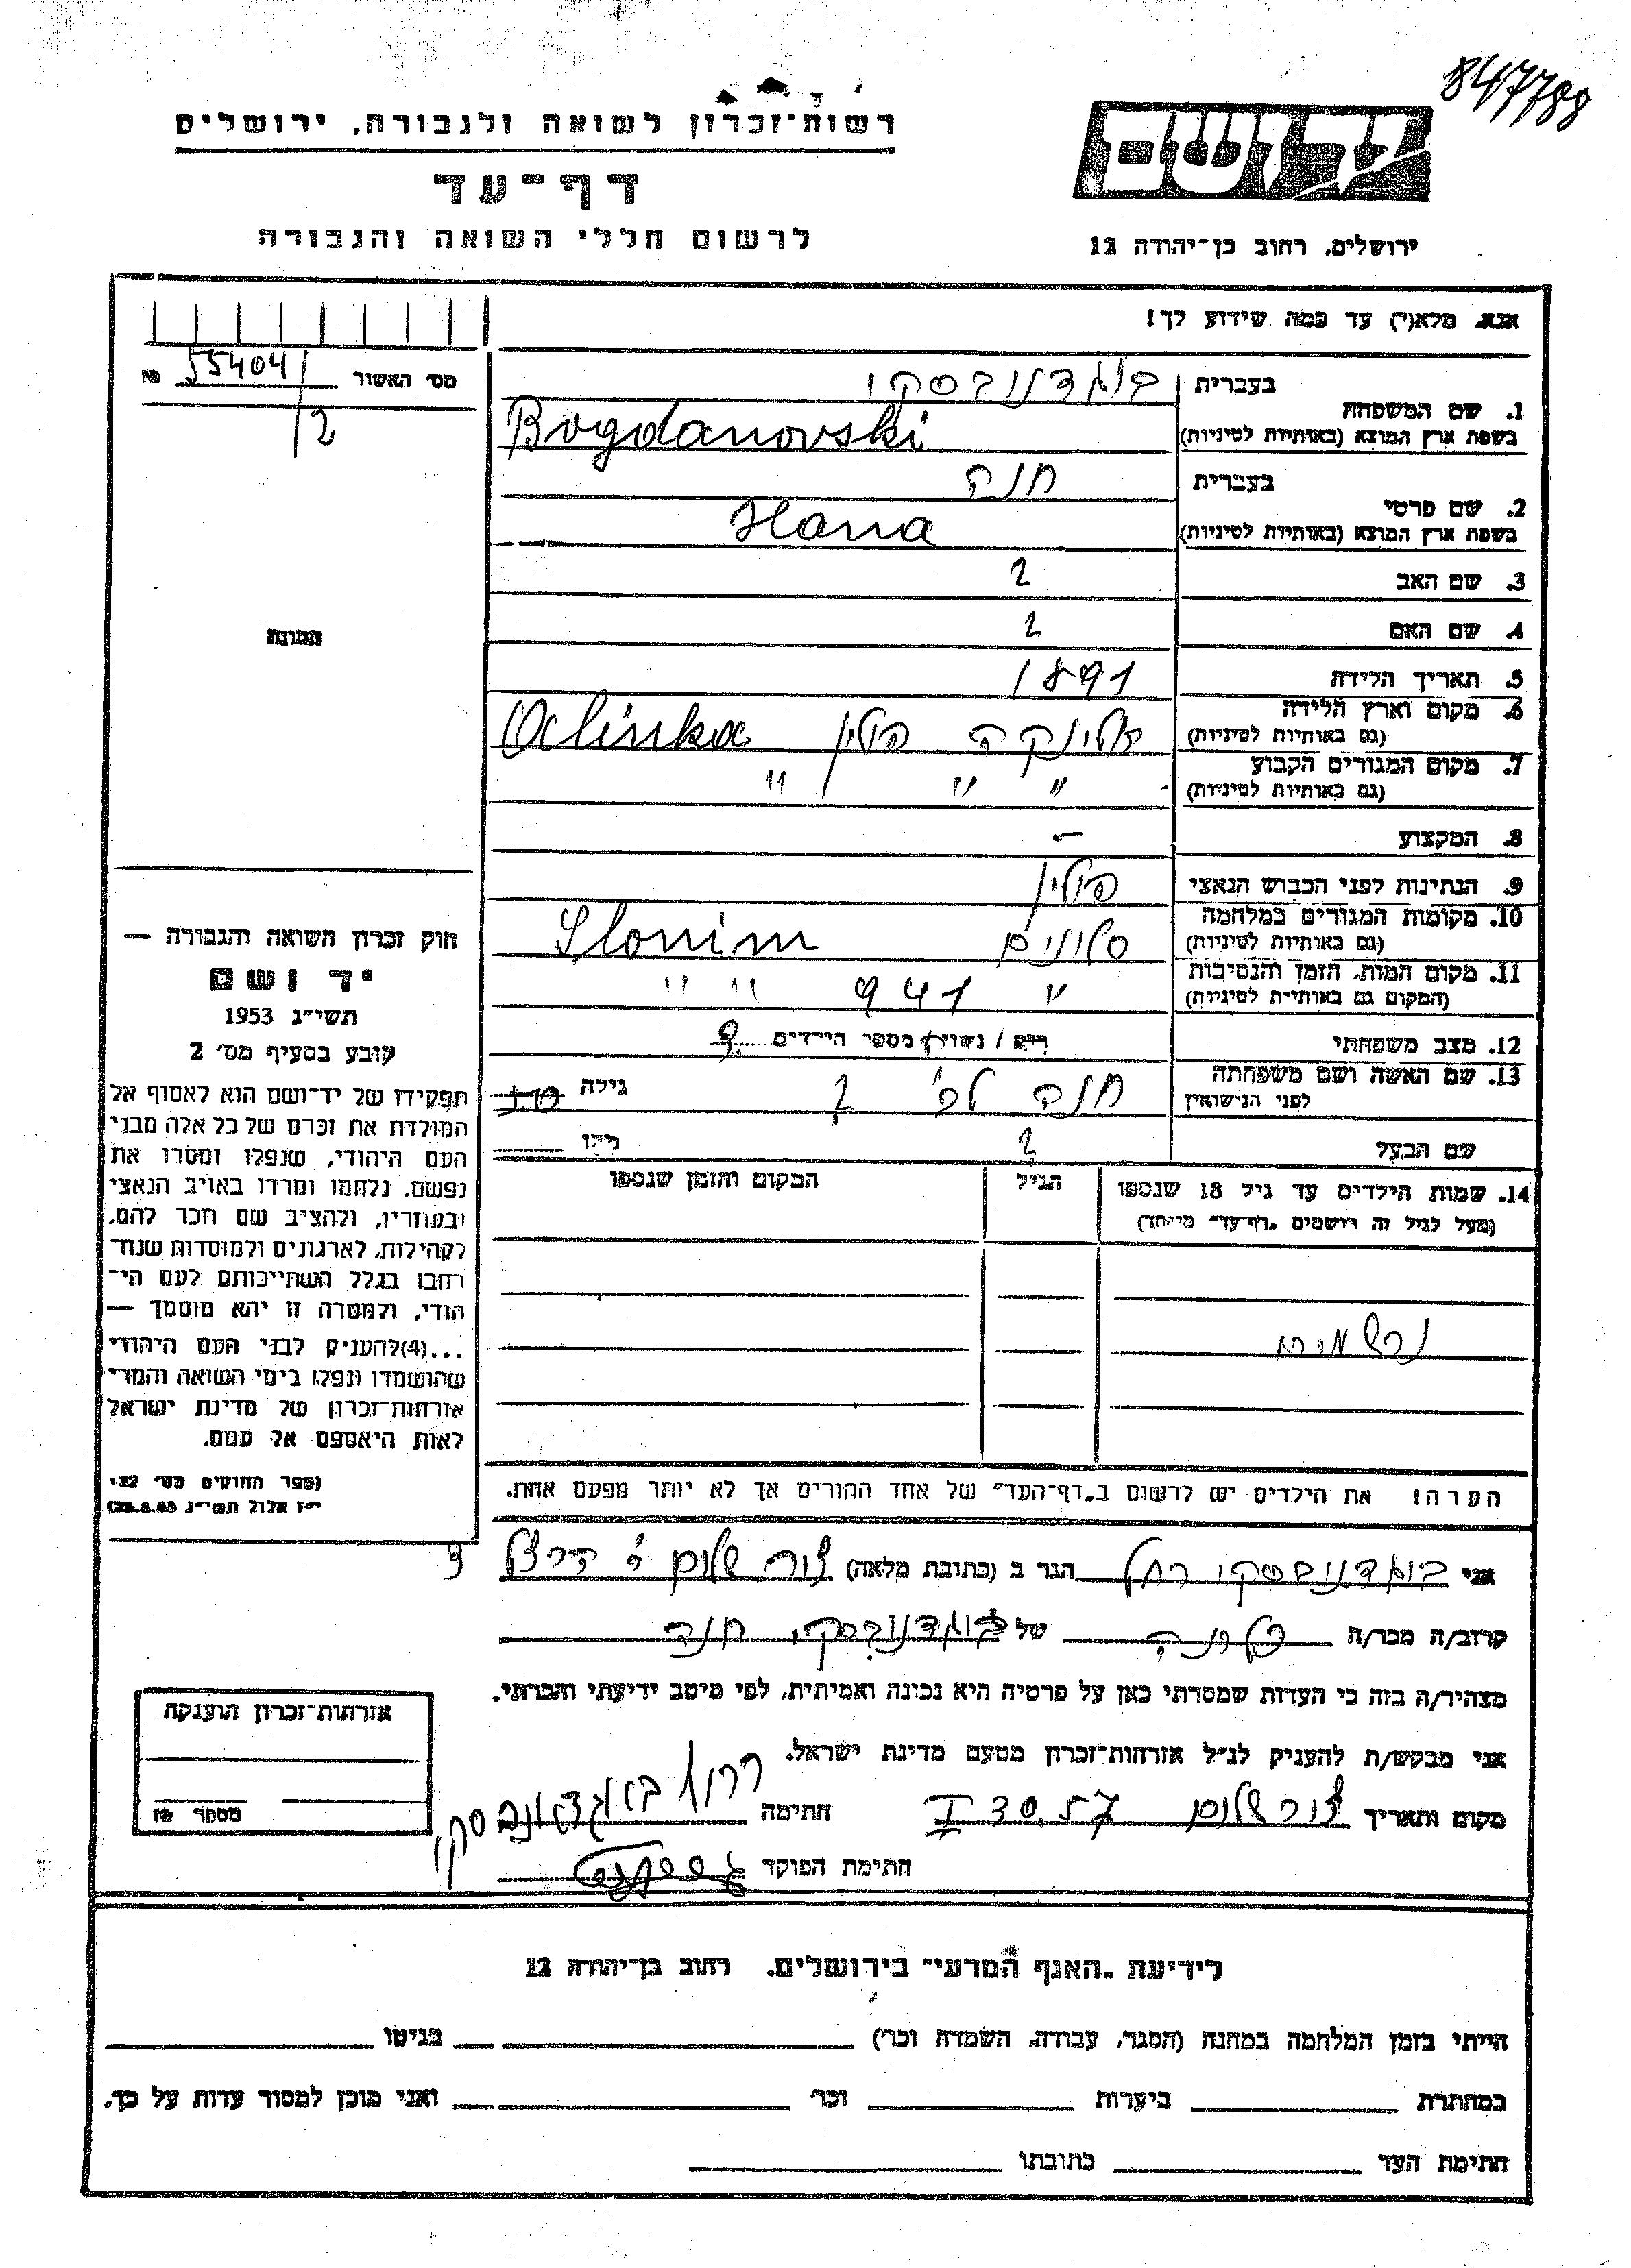 847788
יד ושם
רשות־זכרון לשואה ולגבורה, ירושלים
דף־עד
לרשום חללי השואה והגבורה
ירושלים, רחוב בן־יהודה 12
אנא, מלא(י) עד כמה שידוע לך!
מס׳ האשור 55404 №
2
בעברית בוגדנובסקי
1. שם המשפחה
בשפת ארץ המוצא (באותיות לטיניות) Bogdanovski
בעברית חנה
2. שם פרטי
בשפת ארץ המוצא (באותיות לטיניות) Hana
3. שם האב ?
4. שם האם ?
5. תאריך הלידה 1891
6. מקום וארץ הלידה
(גם באותיות לטיניות) פולין
7. מקום המגורים הקבוע
(גם באותיות לטיניות) " " "
8. המקצוע -
9. הנתינות לפני הכבוש הנאצי פולין
10. מקומות המגורים במלחמה
(גם באותיות לטיניות) סלונים Slonim
11. מקום המות, הזמן והנסיבות
(המקום גם באותיות לטיניות) " 941 " "
12. מצב משפחתי רוק / נשוי מספר הילדים
13. שם האשה ושם משפחתה חנה לב׳ ? גילה
לפני הנישואין
שם הבעל ? גילו
14. שמות הילדים עד גיל 18 שנספו הגיל המקום והזמן שנספו
(מעל לגיל זה רושמים „דף־עד" מיוחד)
נרשמות
הערה! את הילדים יש לרשום ב„דף־העד" של אחד ההורים אך לא יותר מפעם אחת.
התמונה
חוק זכרון השואה והגבורה —
יד ושם
תשי״ג 1953
קובע בסעיף מס׳ 2
תפקידו של יד־ושם הוא לאסוף אל
המולדת את זכרם של כל אלה מבני
העם היהודי, שנפלו ומסרו את
נפשם, נלחמו ומרדו באויב הנאצי
ובעוזריו, ולהציב שם וזכר להם,
לקהילות, לארגונים ולמוסדות שנח־
רבו בגלל השתייכותם לעם הי־
הודי, ולמטרה זו יהא מוסמך —
...(4)להעניק לבני העם היהודי
שהושמדו ונפלו בימי השואה והמרי
אזרחות־זכרון של מדינת ישראל
לאות היאספם אל עמם.
(ספר החוקים מס׳ 132.
י״ז אלול תשי״ג 28.8.53)
אני בוגדנובסקי רחל הגר ב (כתובת מלאה) צור שלום
קרוב/ה מכר/ה של בוגדנובסקי, חנה
מצהיר/ה בזה כי העדות שמסרתי כאן על פרטיה היא נכונה ואמיתית, לפי מיטב ידיעתי והכרתי.
אני מבקש/ת להעניק לנ״ל אזרחות־זכרון מטעם מדינת ישראל.
מקום ותאריך צור שלום 30.I 57 חתימה בוגדנובסקי
חתימת הפוקד
אזרחות־זכרון הוענקה
מספר
לידיעת „האגף המדעי" בירושלים, רחוב בן־יהודה 12
הייתי בזמן המלחמה במחנה (הסגר, עבודה, השמדה וכר) בגיטו
במחתרת ביערות וכר ואני מוכן למסור עדות על כך.
חתימת העד כתובתו